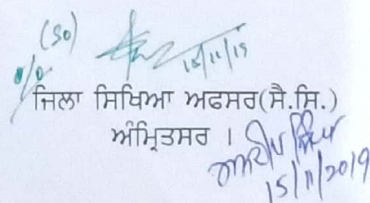 (SO)
15/11/19
ਜਿਲਾ ਸਿਖਿਆ ਅਫਸਰ(ਸੈ.ਸਿ.)
ਅੰਮ੍ਰਿਤਸਰ ।
15/11/2019